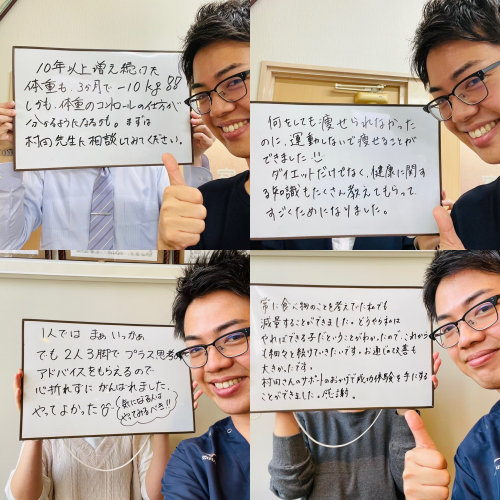 10年以上増え続けた
体重も、3ヶ月で−10kg!!
しかも、体重のコントロールの仕方が
分かるようになるかも。まずは
村田先生に相談してみてください。
何をしても痩せられなかった
のに、運動しないで痩せることが
できました!!
ダイエットだけでなく、健康に関す
る知識もたくさん教えてもらって、
すごくためになりました。
1人では まぁいっかぁ
でも2人3脚でプラス思考の
アドバイスをもらえるので
心折れずに がんばれました。
やってよかった
気になる人は
やってみるべき!!
常に食べ物のことを考えていた私でも
減量することができました。どうやら私は
やればできる子だということがわかったので、これから
も細々と続けていきたいです。お通じの改善も
大きかったです。
村田さんのサポートのおかげで成功体験を手にする
ことができました。感謝。